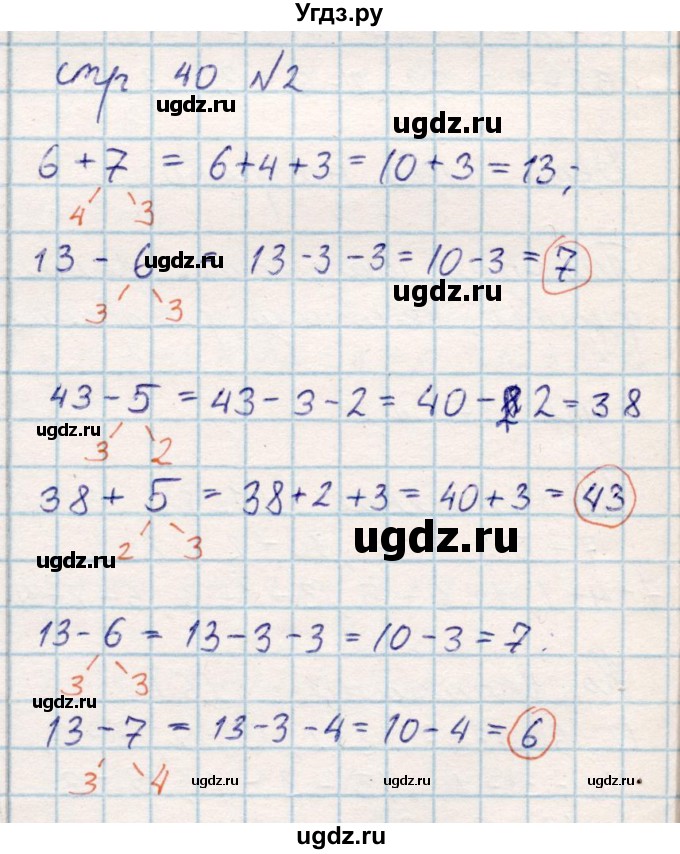 Угдз.ру
стр 40 №2
ugdz.ru
ugdz.ru
6 + 7 = 6 + 4 + 3 = 10 + 3 = 13;
4 3
ugdz.ru
13 - 6 ugdz.ru = 13 - 3 - 3 = 10 - 3 = 7
3 3
ugdz.ru
43 - 5 = 43 - 3 - 2 = 40 - 2 = 38
ugdz.ru
3 2
38 + 5 = 38 + 2 + 3 = 40 + 3 = 43
2 3
ugdz.ru
ugdz.ru
13 - 6 = 13 - 3 - 3 = 10 - 3 = 7.
3 3
ugdz.ru
13 - 7 = 13 - 3 - 4 = 10 - 4 = 6
3 4
ugdz.ru ugdz.ru ugdz.ru
ugdz.ru